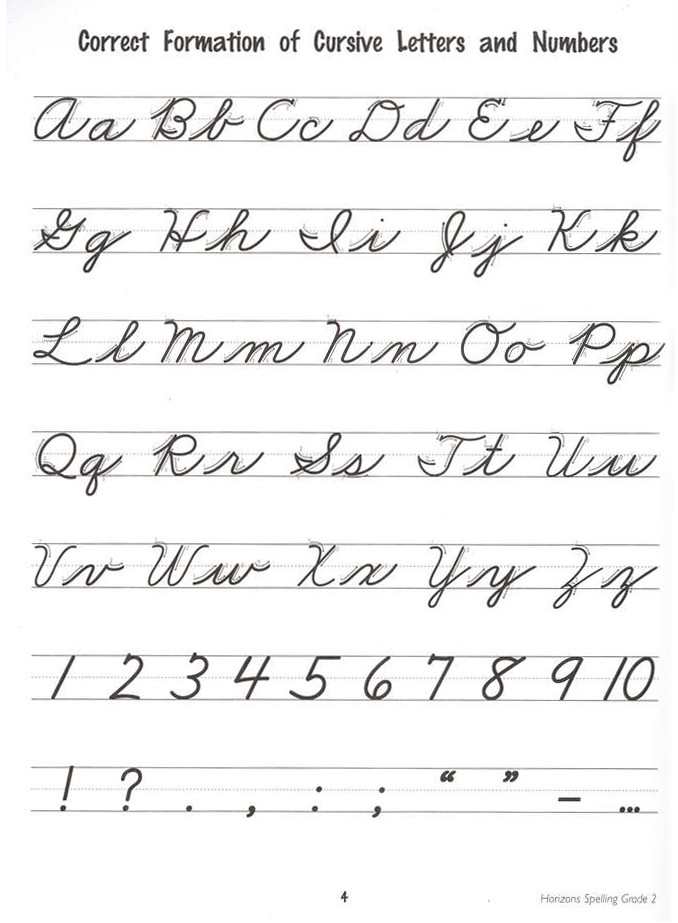 Correct Formation of Cursive Letters and Numbers
Aa Bb Cc Dd Ee Ff
Gg Hh Ii Jj Kk
Ll Mm Nn Oo Pp
Qq Rr Ss Tt Uu
Vv Ww Xx Yy Zz
1 2 3 4 5 6 7 8 9 10
! ? . , : ; “ ” – ...
4
Horizons Spelling Grade 2